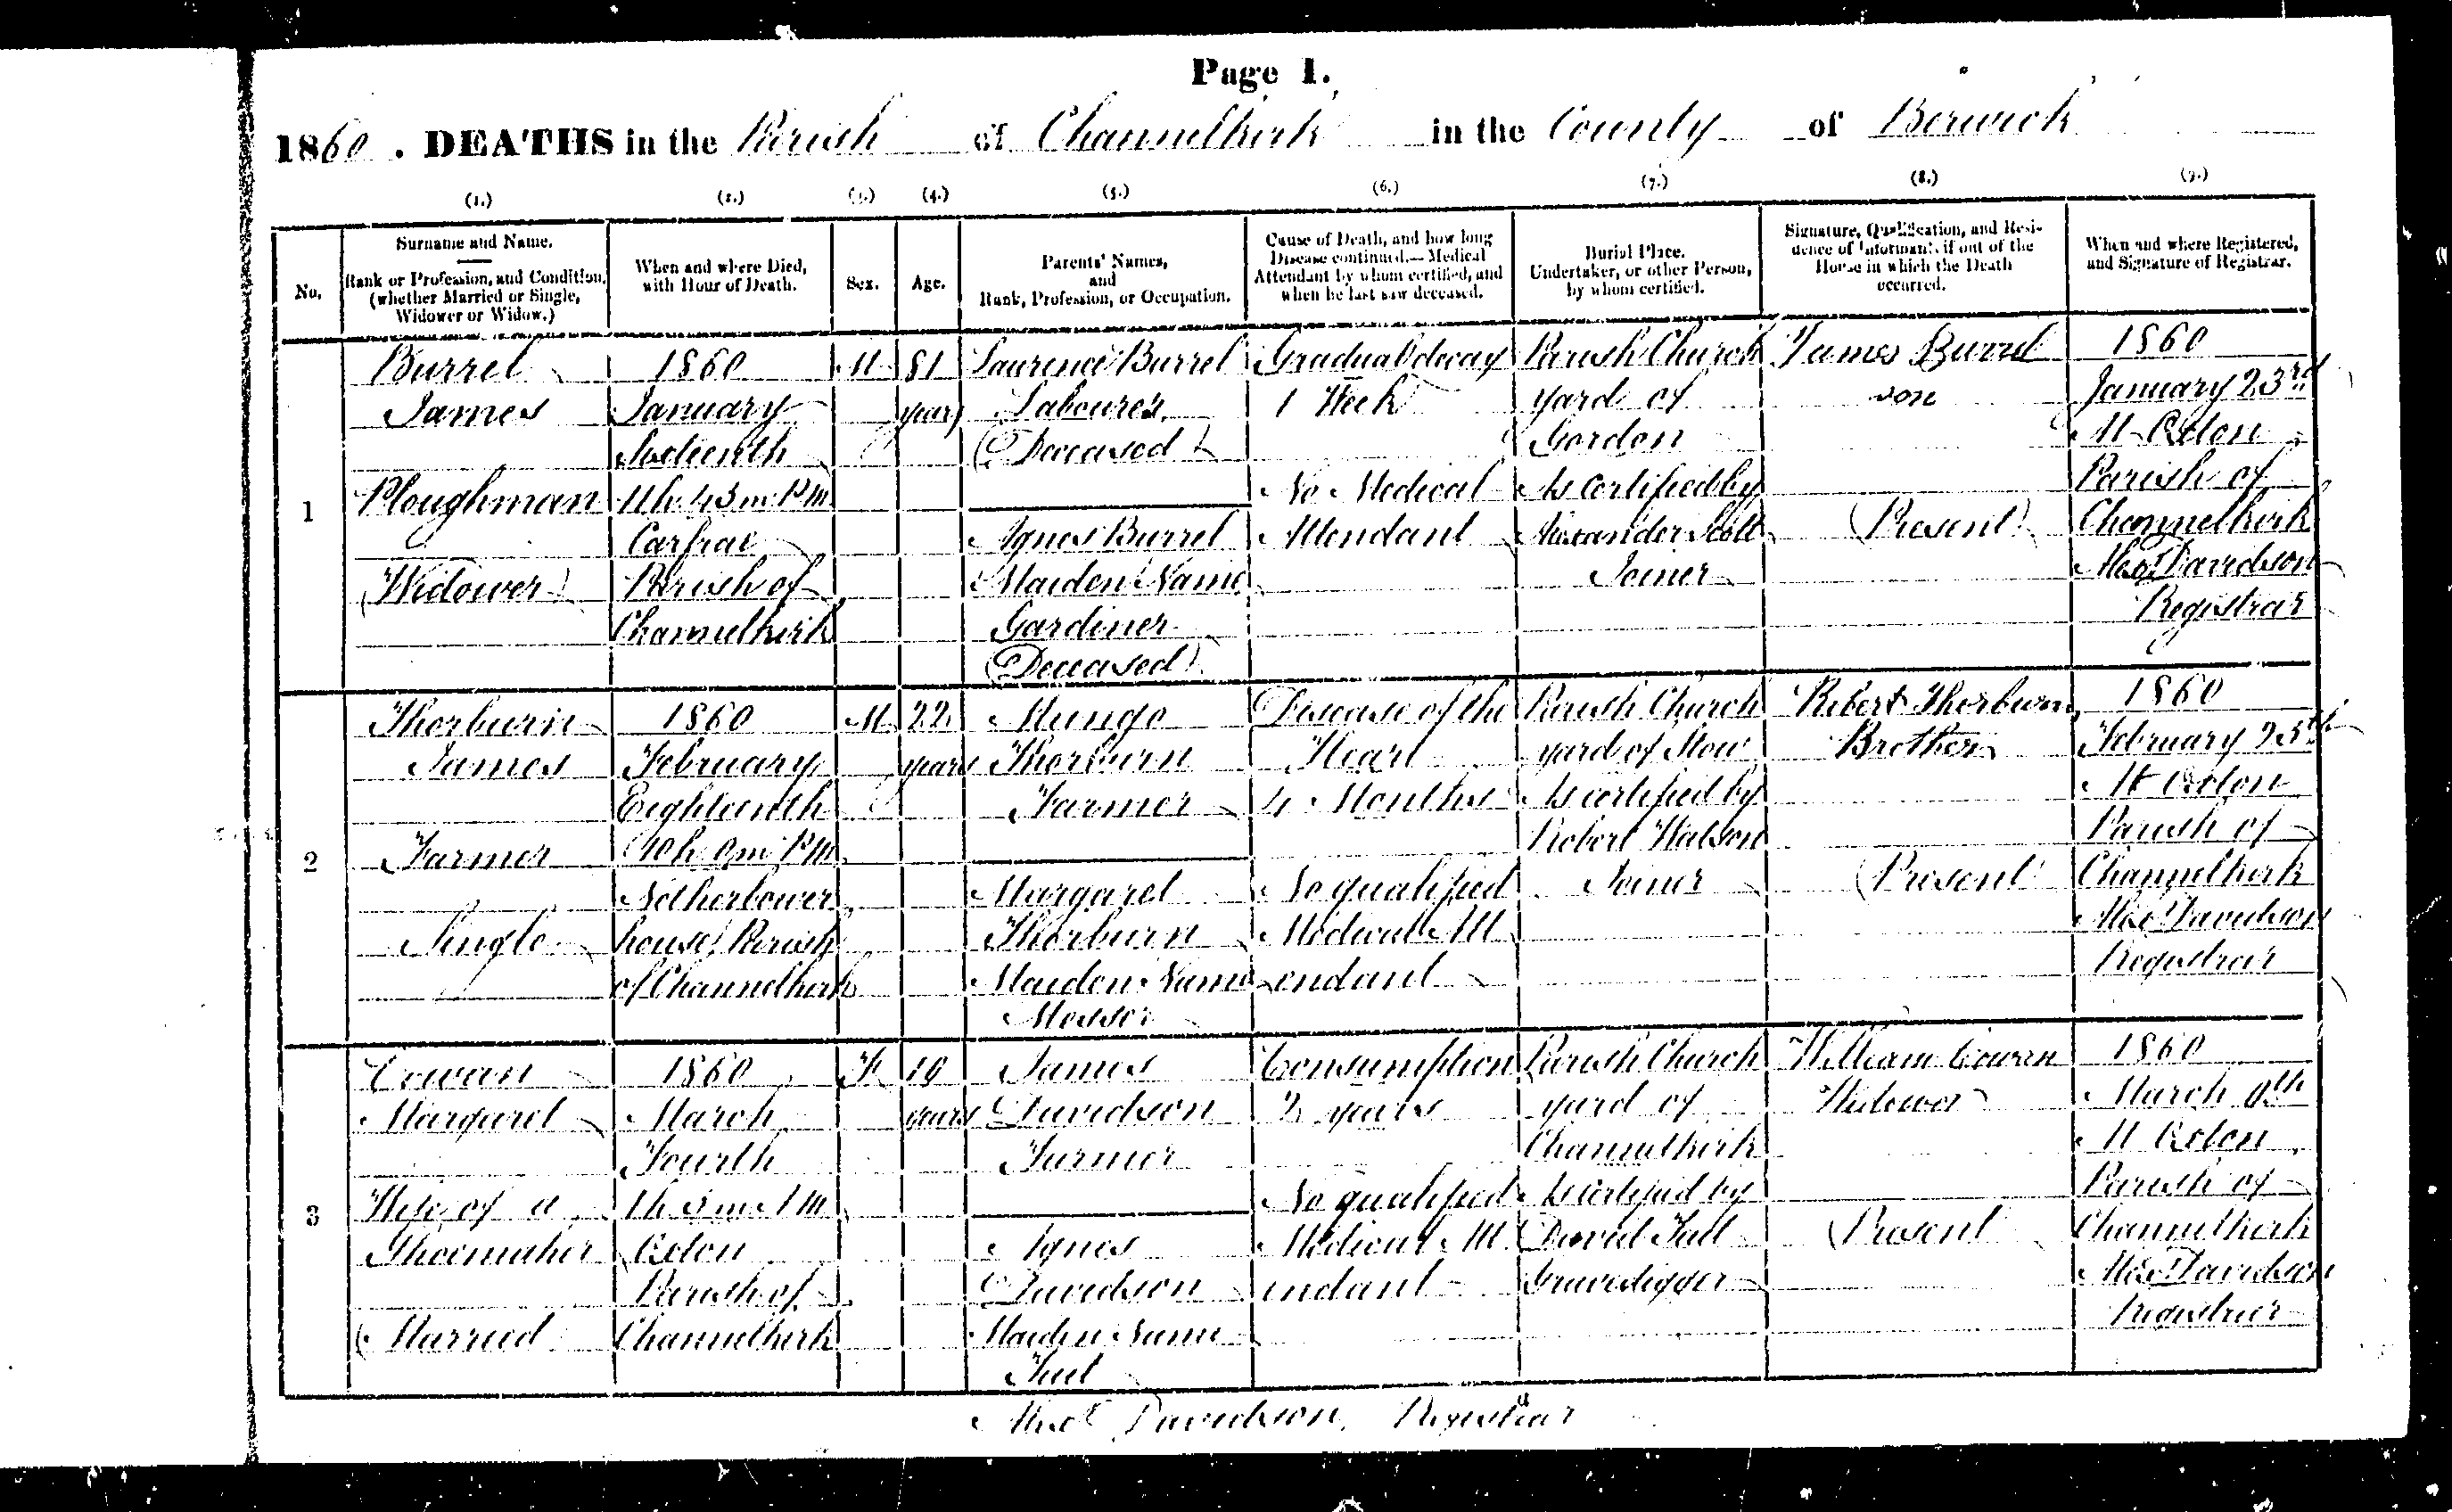 Page 1.
1860. DEATHS in the Parish of Channelkirk in the County of Berwick
(1.) (2.) (3.) (4.) (5.) (6.) (7.) (8.) (9.)
No.
Surname and Name.
Rank or Profession, and Condition,
(whether Married or Single,
Widower or Widow.)
When and where Died,
with Hour of Death.
Sex.
Age.
Parents' Names,
and
Rank, Profession, or Occupation.
Cause of Death, and how long
Disease continued.—Medical
Attendant by whom certified, and
when he last saw deceased.
Burial Place.
Undertaker, or other Person,
by whom certified.
Signature, Qualification, and Resi-
dence of Informant, if out of the
House in which the Death
occurred.
When and where Registered,
and Signature of Registrar.
1
Burrel
James
Ploughman
(Widower)
1860
January
Sixteenth
11h. 45m P.M.
Carfrae
Parish of
Channelkirk
M
81
years
Laurence Burrel
Labourer
(Deceased)
Agnes Burrel
Maiden Name
Gardiner
(Deceased)
Gradual decay
1 Week
No Medical
Attendant
Parish Church
yard of
Gordon
As certified by
Alexander Scott
Joiner
James Burrel
son
(Present)
1860
January 23rd
At Oxton
Parish of
Channelkirk
Alexr Davidson
Registrar
2
Thorburn
James
Farmer
Single
1860
February
Eighteenth
10h. 0m P.M.
Netherbower
house, Parish
of Channelkirk
M
22
years
Mungo
Thorburn
Farmer
Margaret
Thorburn
Maiden Name
Messer
Disease of the
Heart
4 Months
No qualified
Medical Att
endant
Parish Church
yard of Stow
As certified by
Robert Watson
Joiner
Robert Thorburn
Brother
(Present)
1860
February 25th
At Oxton
Parish of
Channelkirk
Alexr Davidson
Registrar
3
Cowan
Margaret
Wife of a
Shoemaker
(Married
1860
March
Fourth
1h. 5m A.M.
Oxton
Parish of
Channelkirk
F
years
James
Davidson
Farmer
Agnes
Davidson
Maiden Name
Consumption
2 years
No qualified
Medical Att
endant
Parish Church
yard of
Channelkirk
As certified by
David
Gravedigger
William Cowan
Widower
(Present)
1860
March 9th
At Oxton
Parish of
Channelkirk
Alexr Davidson
Registrar
Alexr Davidson, Registrar